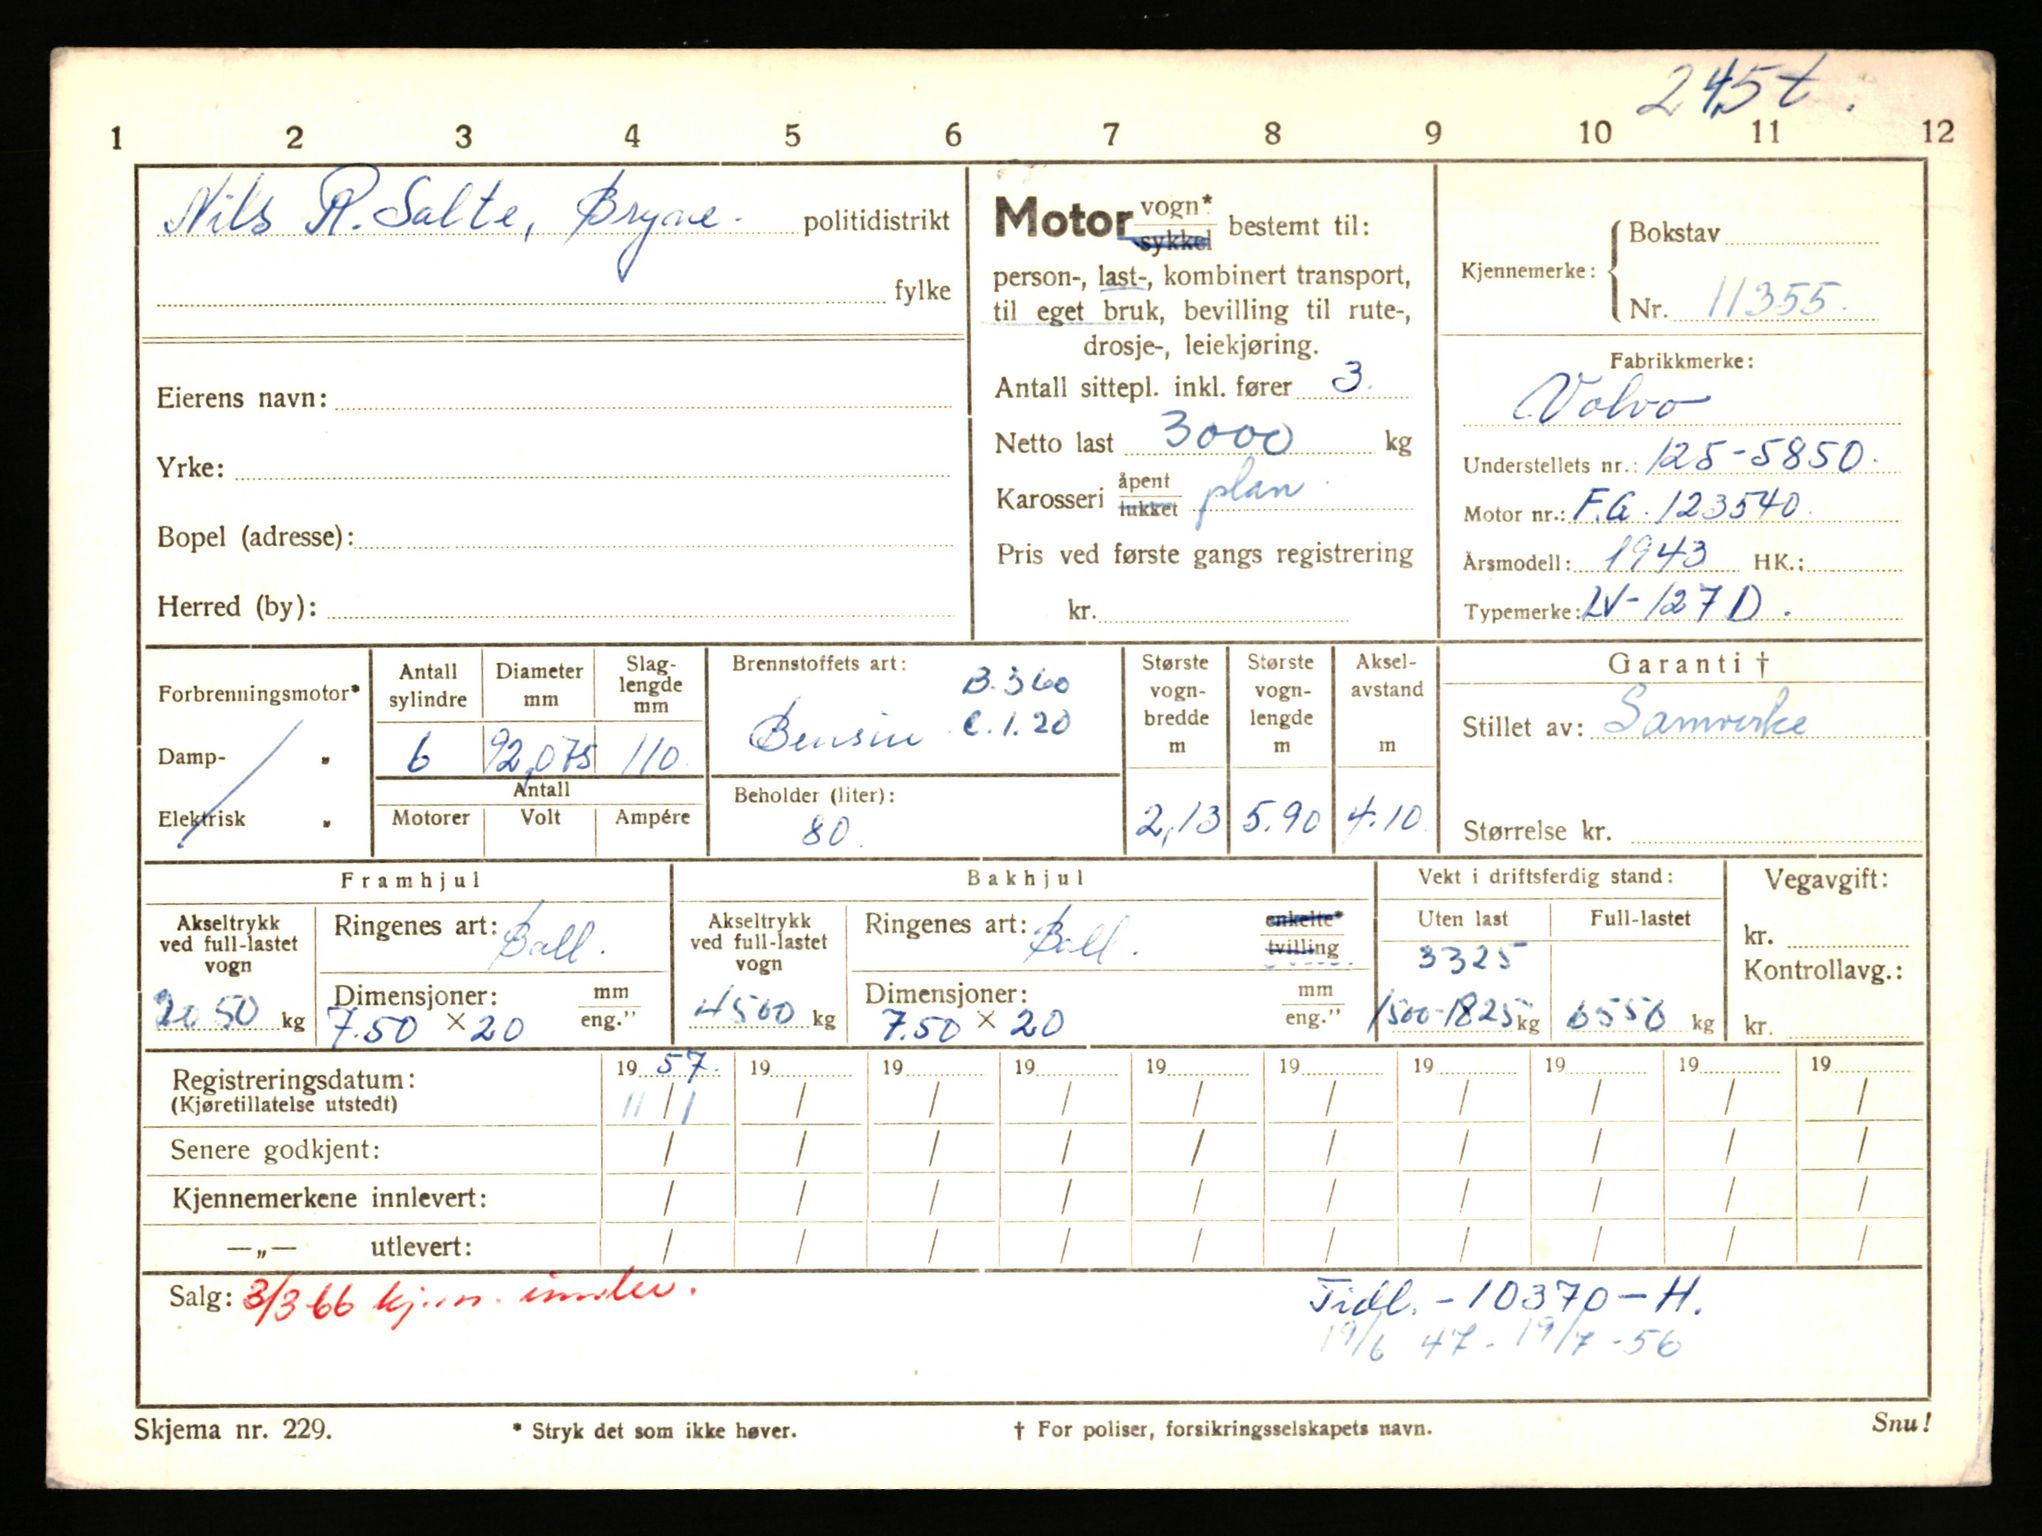 245t.
1 2 3 4 5 6 7 8 9 10 11 12
Nils R. Salte, Bryne. politidistrikt
fylke
Eierens navn:
Yrke:
Bopel (adresse):
Herred (by):
Motor vogn* sykkel bestemt til:
person-, last-, kombinert transport,
til eget bruk, bevilling til rute-,
drosje-, leiekjøring.
Antall sittepl. inkl. fører 3.
Netto last 3000 kg
Karosseri åpent lukket plan
Pris ved første gangs registrering
kr.
Kjennemerke: Bokstav
Nr. 11355.
Fabrikkmerke:
Volvo
Understellets nr.: 125-5850.
Motor nr.: F.G. 123540.
Årsmodell: 1943 HK.:
Typemerke: LV-127D.
Forbrenningsmotor*
Damp- „
Elektrisk „
Antall sylindre
6
Diameter mm
92,075
Slag-lengde mm
110
Antall
Motorer Volt Ampére
Brennstoffets art: B. 360
Bensin C.1.20
Beholder (liter):
80.
Største vogn-bredde m
2,13
Største vogn-lengde m
5.90
Aksel-avstand m
4.10
Garanti †
Stillet av: Samvirke
Størrelse kr.
Framhjul
Akseltrykk ved full-lastet vogn
2050 kg
Ringenes art: Ball.
Dimensjoner: mm eng."
7.50 × 20
Bakhjul
Akseltrykk ved full-lastet vogn
4500 kg
Ringenes art: Ball. enkelte* tvilling
Dimensjoner: mm eng."
7.50 × 20
Vekt i driftsferdig stand:
Uten last Full-lastet
3325
1500-1825 kg 6550 kg
Vegavgift:
kr.
Kontrollavg.:
kr.
Registreringsdatum: 19 57. 19 19 19 19 19 19 19 19 19
(Kjøretillatelse utstedt) 11/1 / / / / / / / / /
Senere godkjent: / / / / / / / / / /
Kjennemerkene innlevert: / / / / / / / / / /
—„— utlevert: / / / / / / / / / /
Salg: 3/3 66 kj.m. innlev.
Tidl. - 10370 - H.
19/6 47 - 19/7 - 56
Skjema nr. 229. * Stryk det som ikke høver. † For poliser, forsikringsselskapets navn. Snu!